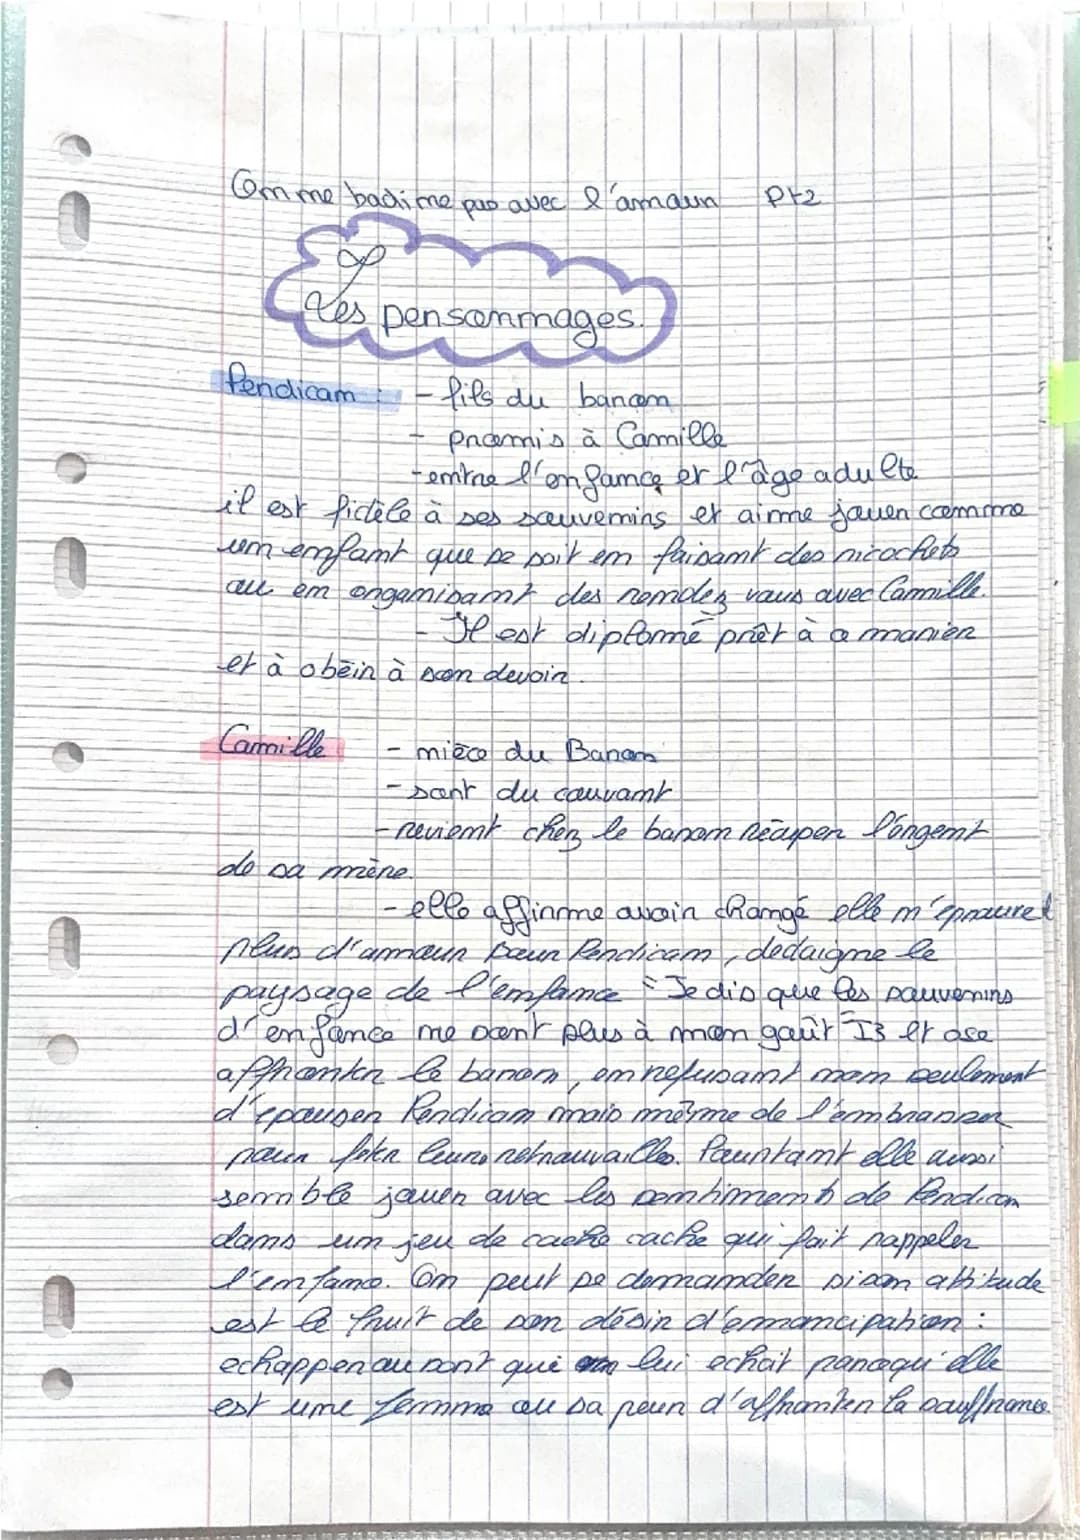 On ne badine pas avec l'amour Pt2
Les personnages.
Perdican : - fils du baron
- promis à Camille
- entre l'enfance et l'âge adulte
il est fidèle à ses souvenirs et aime jouer comme
un enfant que se soit en faisant des ricochets
ou en organisant des rendez vous avec Camille.
- Il est diplomé prêt à se marier
et à obéir à son devoir.
Camille - nièce du Baron
- sort du couvant
- revient chez le baron récuper l'argent
de sa mère.
- elle affirme avoir changé elle n'éprouve
plus d'amour pour Perdican, dedaigne le
paysage de l'enfance "Je dis que les souvenirs
d'enfance ne sont plus à mon goût" I3 et ose
affronter le baron, en refusant non seulement
d'épouser Perdican mais même de l'embrasser
pour fêter leurs retrouvailles. Pourtant elle aussi
semble jouer avec les sentiments de Perdican
dans un jeu de cache cache qui fait rappeler
l'enfance. On peut se demander si son attitude
est le fruit de son désir d'émancipation :
echapper au sort qui lui echoit parcequ'elle
est une femme ou sa peur d'affronter la souffrance